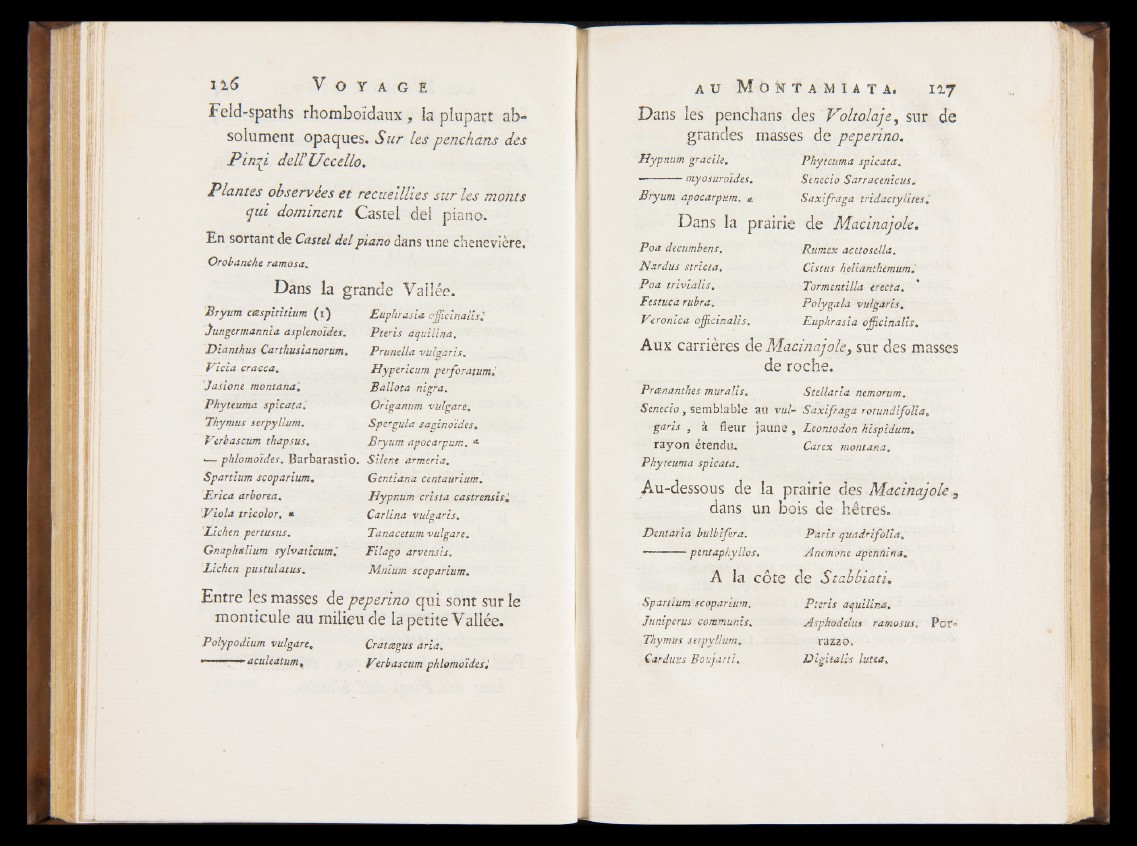 126 VOYAGE
Feld-spaths rhomboïdaux, la plupart ab-
solument opaques. Sur les penchans des
Pinzi dell'Uccello.
Plantes observées et recueillies sur les monts
qui dominent Castel del piano.
En sortant de Castel del piano dans une chenevière.
Orobanche ramosa.
Dans la grande Vallée.
Bryum cæspititium (1)
Jungermannia asplenoïdes.
Dianthus Carthusianorum.
Vicia cracca.
Jasione montana.
Phyteuma spicata.
Thymus serpyllum.
Verbascum thapsus.
— phlomoïdes. Barbarastio.
Spartium scoparium.
Erica arborea.
Viola tricolor. α
Lichen pertusus.
Gnaphalium sylvaticum.
Lichen pustulatus.
Euphrasia officinalis.
Pteris aquilina.
Prunella vulgaris.
Hypericum perforatum.
Ballota nigra.
Origanum vulgare.
Spergula saginoides.
Bryum apocarpum. α
Silene armeria.
Gentiana centaurium.
Hypnum crista castrensis.
Carlina vulgaris.
Tanacetum vulgare.
Filago arvensis.
Mnium scoparium.
Entre les masses de peperino qui sont sur le
monticule au milieu de la petite Vallée.
Polypodium vulgare.
——— aculeatum.
Cratægus aria.
Verbascum phlomoïdes.
AU MONTAMIATA. 127
Dans les penchans des Voltolaje, sur de
grandes masses de peperino.
Hypnum gracile.
——— myosuroïdes.
Bryum apocarpum. α
Phyteuma spicata.
Senecio Sarracenicus.
Saxifraga tridactylites.
Dans la prairie de Macinajole.
Poa decumbens.
Nardus stricta.
Poa trivialis.
Festuca rubra.
Veronica officinalis.
Rumex acetosella.
Cistus helianthemum.
Tormentilla erecta.
Polygala vulgaris.
Euphrasia officinalis.
Aux carrières de Macinajole, sur des masses
de roche.
Prænanthes muralis.
Senecio, semblable au vul-
garis, à fleur jaune,
rayon étendu.
Phyteuma spicata.
Stellaria nemorum.
Saxifraga rotundifolia.
Leontodon hispidum.
Carex montana.
Au-dessous de la prairie des Macinajole,
dans un bois de hêtres.
Dentaria bulbifera.
——— pentaphyllos.
Paris quadrifolia.
Anemone apennina.
A la côte de Stabbiati.
Spartium scoparium.
Juniperus communis.
Thymus serpyllum.
Carduus Boujarti.
Pteris aquilina.
Asphodelus ramosus. Por-
razzo.
Digitalis lutea.